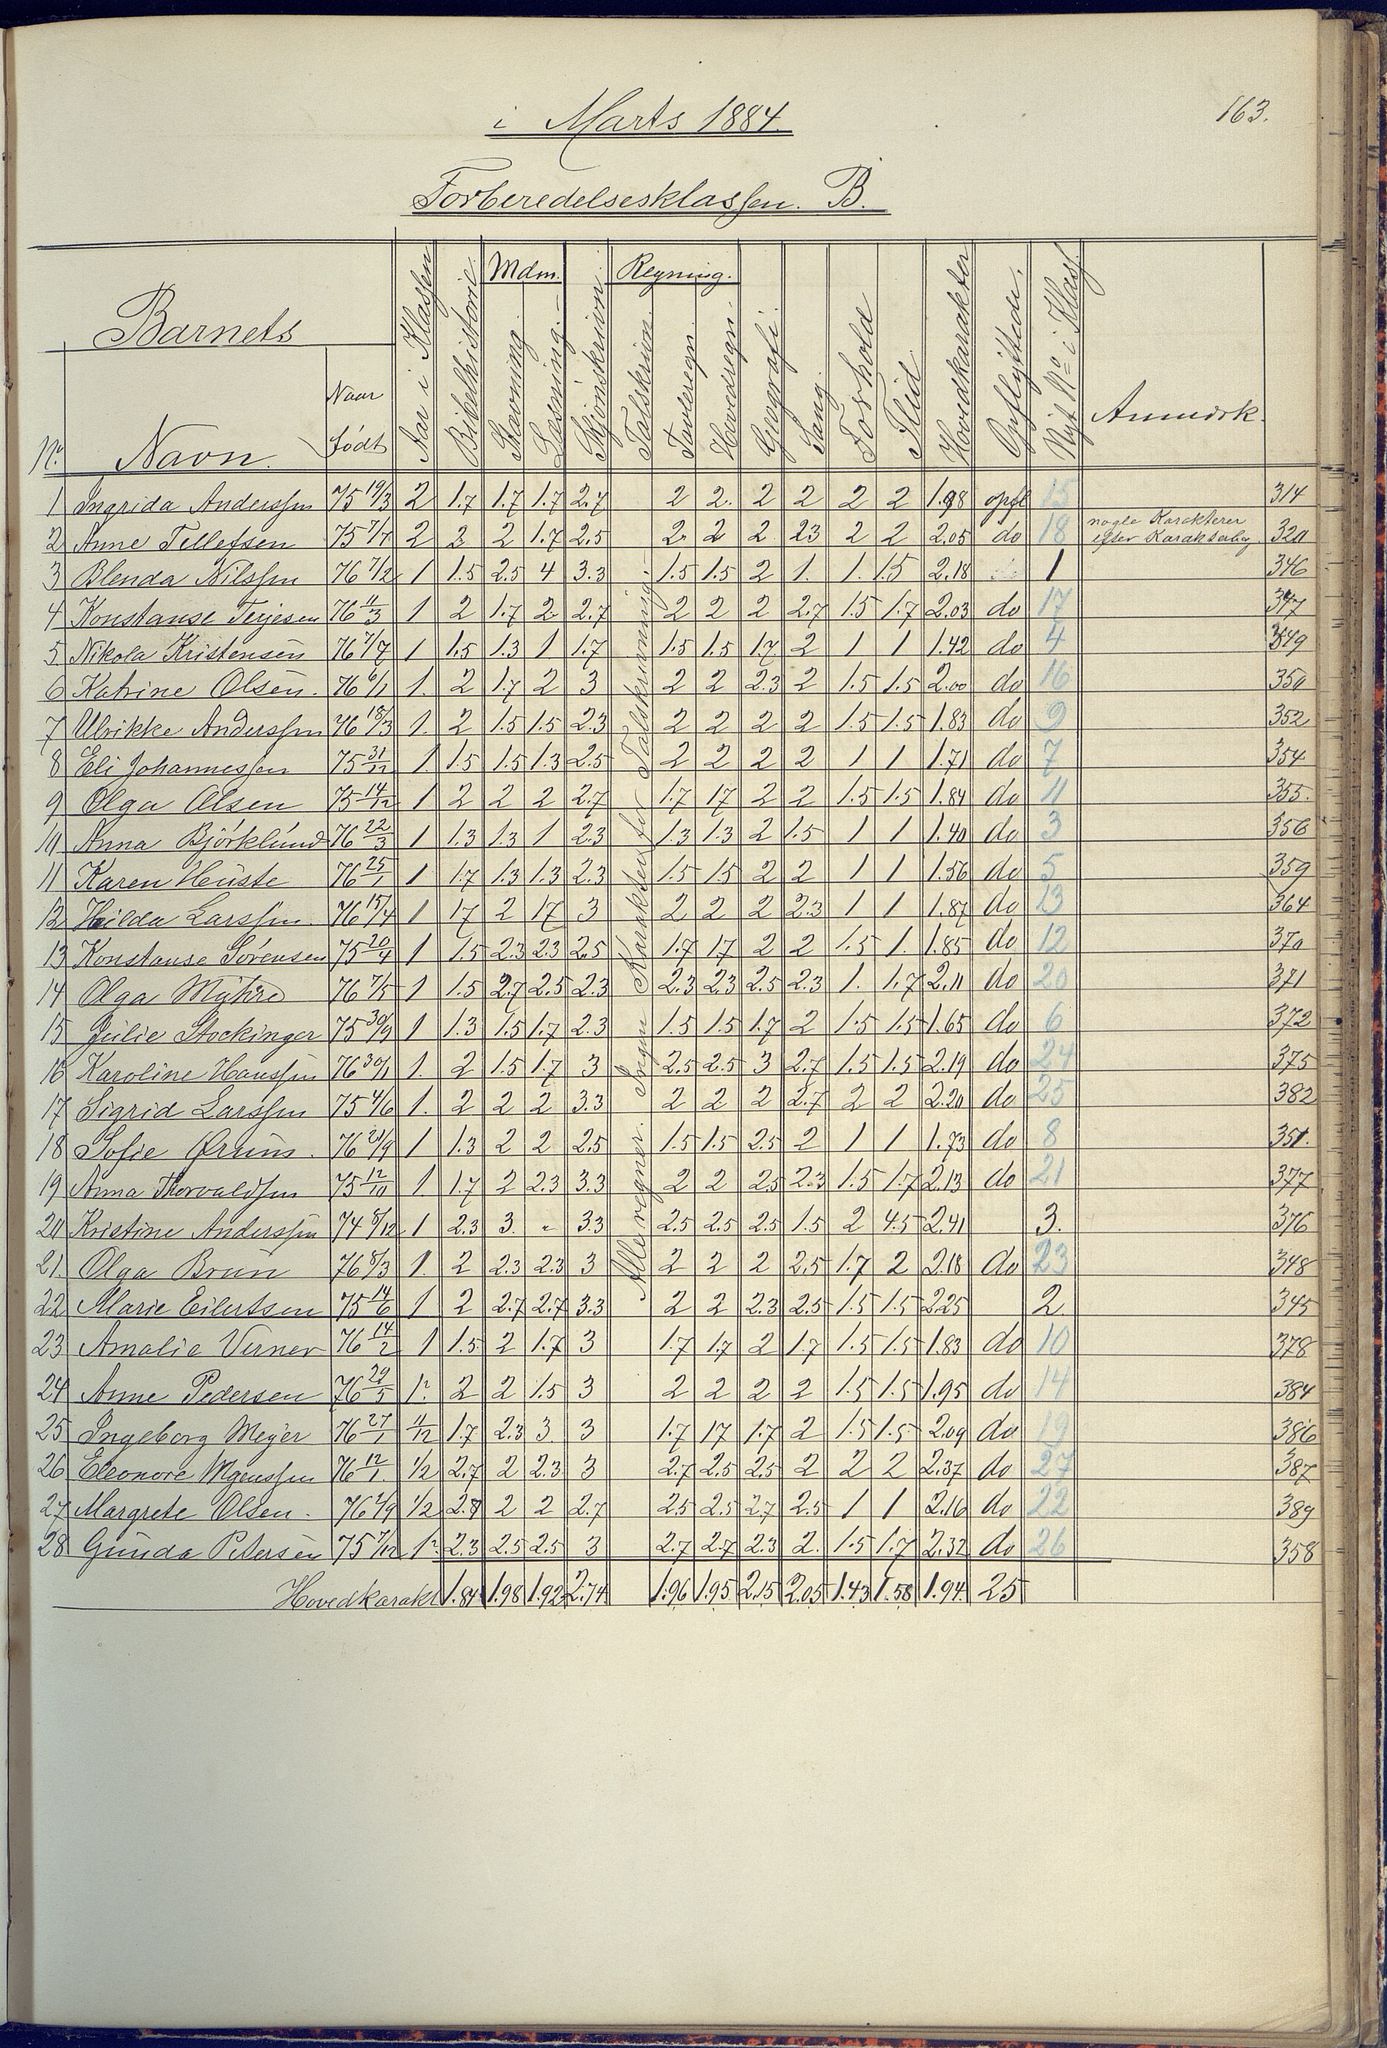 163.
i Marts 1884.
Forberedelsesklassen. B.
Barnets
Mdm.
Regning.
No. Navn. Naar født Aar i Klassen Bibelhistorie. Stavning. Læsning. Skjönskrivn. Talskrivn. Tavleregn. Hovedregn. Geografi. Sang. Forhold Flid Hovedkarakter Opflyttede. Nyt No i Klass. Anmerk.
1 Ingrida Anderssen 75 19/3 2 1.7 1.7 1.7 2.7 2 2. 2 2 2 2 1.98 opfl 15 314
2 Anne Tellefsen 75 7/7 2 2 2 1.7 2.5 2 2 2 2.3 2 2 2.05 do 18 nogle Karakterer efter Karakterbg. 320
3 Blenda Nilssen 76 7/2 1 1.5 2.5 4 3.3 1.5 1.5 2 1. 1. 1.5 2.18 1 346
4 Konstanse Terjesen 76 11/3 1 2 1.7 2 2.7 2 2 2 2.7 1.5 1.7 2.03 do 17 347
5. Nikola Kristensen 76 7/7 1 1.5 1.3 1 1.7 1.5 1.5 1.7 2 1 1 1.42 do 4 349
6 Katrine Olsen. 76 6/1 1. 2 1.7 2 3 2 2 2.3 2 1.5 1.5 2.00 do 16 350
7 Ulrikke Anderssen 76 18/3 1. 2 1.5 1.5 2.3 2 2 2 2 1.5 1.5 1.83 do 9 352
8 Eli Johannessen 75 31/12 1. 1.5 1.5 1.3 2.5 2 2 2 2 1 1 1.71 do 7 354
9 Olga Olsen 75 14/12 1 2 2 2 2.7 1.7 1.7 2 2 1.5 1.5 1.84 do 11 355.
10 Anna Björklund 76 22/3 1 1.3 1.3 1 2.3 1.3 1.3 2 1.5 1 1 1.40 do 3 356
11 Karen Heiste 76 25/1 1 1.7 1.3 1.3 2.3 1.5 1.5 2 2 1 1 1.56 do 5 359
12 Hilda Larssen. 76 15/4 1 1.7 2 1.7 3 2 2 2 2.3 1 1 1.87 do 13 364
13 Konstanse Sørensen 75 20/4 1 1.5 2.3 2.3 2.5 1.7 1.7 2 2 1.5 1. 1.85 do 12 370
14 Olga Myhre 76 7/5 1 1.5 2.7 2.5 2.3 2.3 2.3 2.5 2.3 1. 1.7 2.11 do 20 371
15 Julie Stockinger 75 30/9 1 1.3 1.5 1.7 2.3 1.5 1.5 1.7 2 1.5 1.5 1.65 do 6 372
16 Karoline Hanssen 76 30/1 1. 2 1.5 1.7 3 2.5 2.5 3 2.7 1.5 1.5 2.19 do 24 375
17 Sigrid Larssen 75 4/6 1. 2 2 2 3.3 2 2 2 2.7 2 2 2.20 do 25 382
18 Sofie Øruns. 76 21/9 1 1.3 2 2 2.5 1.5 1.5 2.5 2 1 1 1.73 do 8 351.
19 Anna Thorvaldsen 75 12/10 1. 1.7 2 2.3 3.3 2 2 2.5 2.3 1.5 1.7 2.13 do 21 377
20 Kristine Anderssen 74 8/12 1 2.3 3. " 3.3 2.5 2.5 2.5 1.5 2 4.5 2.41 3. 376
21. Olga Brun 76 8/3 1. 2 2.3 2.3 3 2 2 2 2.5 1.7 2 2.18 do 23 348
22 Marie Eilertsen 75 14/6 1 2 2.7 2.7 3.3 2 2 2.3 2.5 1.5 1.5 2.25 2. 345
23 Amalie Verner 76 14/2 1 1.5 2 1.7 3 1.7 1.7 2 1.7 1.5 1.5 1.83 do 10 378
24 Anne Pedersen 76 29/5 1. 2 2 1.5 3 2 2 2 2 1.5 1.5 1.95 do 14 384
25 Ingeborg Meyer 76 27/1 11/12 1.7 2.3 3 3 1.7 1.7 1.7 2 1.5 1.5 2.09 do 19 386
26 Eleonore Mgenssen 76 12/1. 1/2 2.7 2 2.3 3 2.7 2.5 2.5 2 2 2 2.37 do 27 387
27 Margrete Olsen. 76 2/9 1/2 2.7 2 2 2.7 2.5 2.5 2.7 2.5 1 1 2.16 do 22 389
28 Gunda Petersen 75 7/12 1. 2.3 2.5 2.5 3 2.7 2.7 2.3 2. 1.5 1.7 2.32 do 26 358
Alle regner. Ingen Karakter for Talskrivning.
Hovedkarakt 1.84 1.98 1.92 2.74 1.96 1.95 2.15 2.05 1.43 1.58 1.94. 25